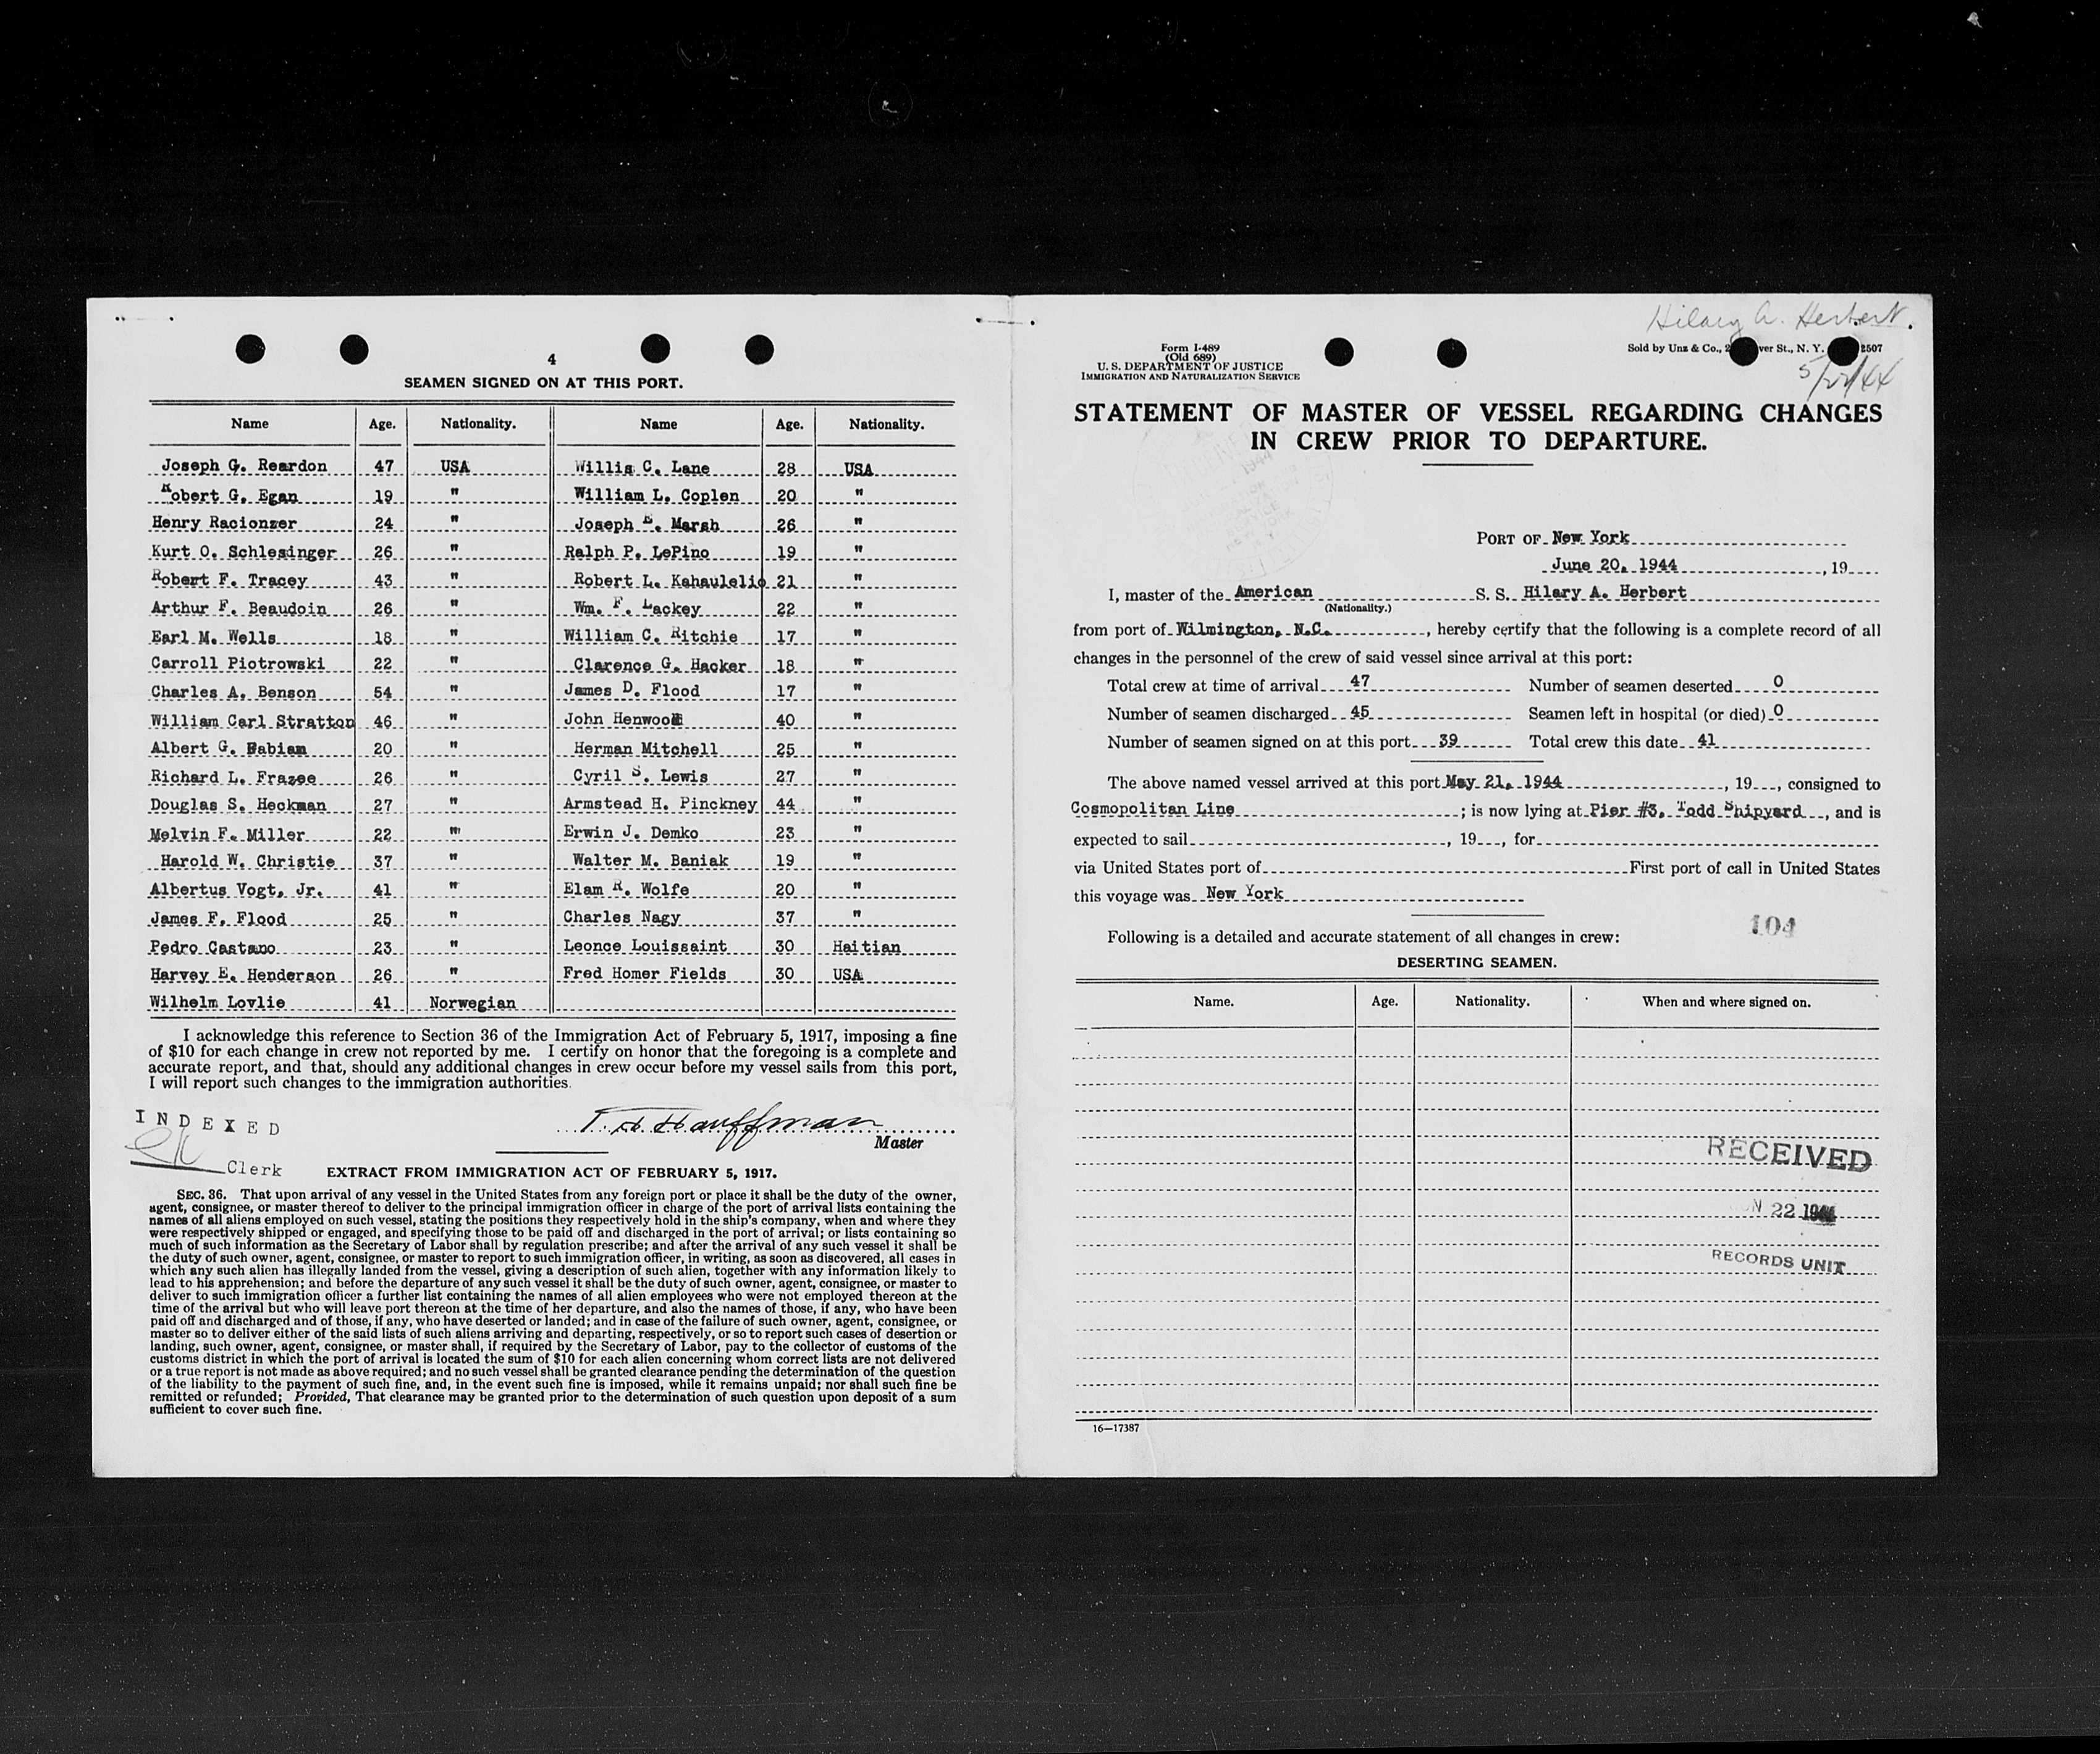 4
SEAMEN SIGNED ON AT THIS PORT.
Name Age. Nationality. Name Age. Nationality.
Joseph G. Reardon 47 USA Willis C. Lane 28 USA
Robert G. Egan 19 " William L. Coplen 20 "
Henry Racionzer 24 " Joseph E. Marsh 26 "
Kurt O. Schlesinger 26 " Ralph P. LePino 19 "
Robert F. Tracey 43 " Robert L. Kahaulelio 21 "
Arthur F. Beaudoin 26 " Wm. F. Lackey 22 "
Earl M. Wells 18 " William C. Ritchie 17 "
Carroll Piotrowski 22 " Clarence G. Hacker 18 "
Charles A. Benson 54 " James D. Flood 17 "
William Carl Stratton 46 " John Henwood 40 "
Albert G. Fabian 20 " Herman Mitchell 25 "
Richard L. Frazee 26 " Cyril S. Lewis 27 "
Douglas S. Heckman 27 " Armstead H. Pinckney 44 "
Melvin F. Miller 22 " Erwin J. Demko 23 "
Harold W. Christie 37 " Walter M. Baniak 19 "
Albertus Vogt, Jr. 41 " Elam R. Wolfe 20 "
James F. Flood 25 " Charles Nagy 37 "
Pedro Castano 23 " Leonce Louissaint 30 Haitian
Harvey E. Henderson 26 " Fred Homer Fields 30 USA
Wilhelm Lovlie 41 Norwegian
I acknowledge this reference to Section 36 of the Immigration Act of February 5, 1917, imposing a fine
of $10 for each change in crew not reported by me. I certify on honor that the foregoing is a complete and
accurate report, and that, should any additional changes in crew occur before my vessel sails from this port,
I will report such changes to the immigration authorities.
INDEXED
T. H. Hauffman
Master
Clerk
EXTRACT FROM IMMIGRATION ACT OF FEBRUARY 5, 1917.
SEC. 36. That upon arrival of any vessel in the United States from any foreign port or place it shall be the duty of the owner,
agent, consignee, or master thereof to deliver to the principal immigration officer in charge of the port of arrival lists containing the
names of all aliens employed on such vessel, stating the positions they respectively hold in the ship's company, when and where they
were respectively shipped or engaged, and specifying those to be paid off and discharged in the port of arrival; or lists containing so
much of such information as the Secretary of Labor shall by regulation prescribe; and after the arrival of any such vessel it shall be
the duty of such owner, agent, consignee, or master to report to such immigration officer, in writing, as soon as discovered, all cases in
which any such alien has illegally landed from the vessel, giving a description of such alien, together with any information likely to
lead to his apprehension; and before the departure of any such vessel it shall be the duty of such owner, agent, consignee, or master to
deliver to such immigration officer a further list containing the names of all alien employees who were not employed thereon at the
time of the arrival but who will leave port thereon at the time of her departure, and also the names of those, if any, who have been
paid off and discharged and of those, if any, who have deserted or landed; and in case of the failure of such owner, agent, consignee, or
master so to deliver either of the said lists of such aliens arriving and departing, respectively, or so to report such cases of desertion or
landing, such owner, agent, consignee, or master shall, if required by the Secretary of Labor, pay to the collector of customs of the
customs district in which the port of arrival is located the sum of $10 for each alien concerning whom correct lists are not delivered
or a true report is not made as above required; and no such vessel shall be granted clearance pending the determination of the question
of the liability to the payment of such fine, and, in the event such fine is imposed, while it remains unpaid; nor shall such fine be
remitted or refunded; Provided, That clearance may be granted prior to the determination of such question upon deposit of a sum
sufficient to cover such fine.
Hilary A. Herbert.
Form I-489
(Old 689)
U. S. DEPARTMENT OF JUSTICE
IMMIGRATION AND NATURALIZATION SERVICE
Sold by Unz & Co., 2 ver St., N. Y. 2507
5/22/44
STATEMENT OF MASTER OF VESSEL REGARDING CHANGES
IN CREW PRIOR TO DEPARTURE.
PORT OF New York
June 20, 1944, 19
I, master of the American S. S. Hilary A. Herbert
(Nationality.)
from port of Wilmington, N.C., hereby certify that the following is a complete record of all
changes in the personnel of the crew of said vessel since arrival at this port:
Total crew at time of arrival 47 Number of seamen deserted 0
Number of seamen discharged 45 Seamen left in hospital (or died) 0
Number of seamen signed on at this port 39 Total crew this date 41
The above named vessel arrived at this port May 21, 1944, 19, consigned to
Cosmopolitan Line; is now lying at Pier #3, Todd Shipyard, and is
expected to sail, 19, for
via United States port of First port of call in United States
this voyage was New York
104
Following is a detailed and accurate statement of all changes in crew:
DESERTING SEAMEN.
Name. Age. Nationality. When and where signed on.
RECEIVED
N 22 1944
RECORDS UNIT
16—17387